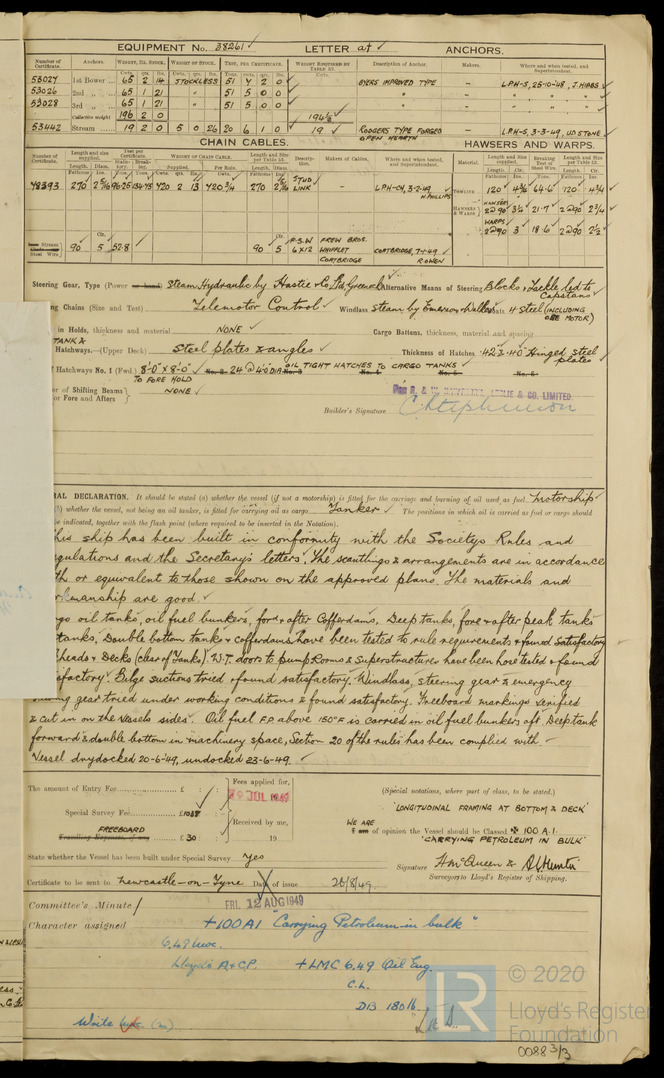 EQUIPMENT No. 38261 LETTER at ANCHORS.
Number of Certificate. Anchors. Weight, Ex. Stock. Weight of Stock. Test, per Certificate. Weight Required by Table 53. Description of Anchor. Makers. Where and when tested, and Superintendent.
Cwts. qrs. lbs. Cwts. qrs. lbs. Tons. cwts. qrs. lbs. Cwts.
53027 1st Bower 65 2 14 STOCKLESS 51 7 2 0 BYERS IMPROVED TYPE - LPH-S, 25-10-48, J. HIBBS
53026 2nd " " 65 1 21 " 51 5 0 0 " - " " "
53028 3rd " " 65 1 21 " 51 5 0 0 " - " " "
Collective weight 196 2 0 196½
53442 Stream 19 2 0 5 0 26 20 6 1 0 19 RODGERS TYPE FORGED OPEN HEARTH - LPH-S, 3-3-49, W.D STONE
CHAIN CABLES. HAWSERS AND WARPS.
Number of Certificate. Length and size supplied. Test per Certificate. Weight of Chain Cable. Length and Size per Table 53. Description. Makers of Cables. Where and when tested, and Superintendent. Material. Length and Size supplied. Breaking Test of Steel Wire. Length and Size per Table 53.
78393 270 2 5/16 96·25 134·75 420 2 13 420 3/4 270 2 5/16 STUD LINK - LPH-CH, 3-2-49 H. PHILLIPS
TOWLINE 120 4¾ 64·6 120 4¾
HAWSERS & WARPS HAWSERS 2@90 3¼ 21·7 2@90 2¾
WARPS 2@90 3 18·6 2@90 2½
Stream Steel Wire 90 5 52·8 90 5 F.S.W 6x12 FREW BROS. WHIFFLET COATBRIDGE COATBRIDGE, 7-1-49 ROWEN
Steering Gear, Type (Power or hand) Steam Hydraulic by Hastie & Co Ltd, Greenock Alternative Means of Steering Blocks & Tackle led to Capstans
ng Chains (Size and Test) Telemotor Control Windlass Steam by Emerson & Walker Boats 4 Steel (INCLUDING ONE MOTOR)
in Holds, thickness and material NONE Cargo Battens, thickness, material and spacing
TANK &
Hatchways.—(Upper Deck) Steel plates & angles Thickness of Hatches ·42 & ·40 Hinged Steel plates
Hatchways No. 1 (Fwd.) 8'-0" x 8'-0" No. 2 24 @ 4'0 DIA OIL TIGHT HATCHES TO CARGO TANKS No. 6
TO FORE HOLD
r of Shifting Beams or Fore and Afters NONE
Per R. & W. HAWTHORN, LESLIE & CO. LIMITED.
Builder's Signature C Stephenson
AL DECLARATION. It should be stated (a) whether the vessel (if not a motorship) is fitted for the carriage and burning of oil used as fuel Motorship
) whether the vessel, not being an oil tanker, is fitted for carrying oil as cargo Tanker The positions in which oil is carried as fuel or cargo should
be indicated, together with the flash point (where required to be inserted in the Notation).
his ship has been built in conformity with the Societys Rules and
gulations and the Secretary's letters. The scantlings & arrangements are in accordance
th or equivalent to those shown on the approved plans. The materials and
rkmanship are good.
go oil tanks, oil fuel bunkers, ford & after Cofferdams, Deep tanks, fore & after peak tanks
tanks, Double bottom tanks & cofferdams have been tested to rule requirements & found satisfactory
heads & Decks (clear of Tanks). W.T. doors to pump Rooms & Superstructures have been hose tested & found
sfactory. Bilge suctions tried & found satisfactory. Windlass, steering gear & emergency
gear tried under working conditions & found satisfactory. Freeboard markings verified
& cut in on the vessels sides. Oil fuel F.P. above 150°F is carried in oil fuel bunkers aft, Deep tank
forward & double bottom in machinery space, Section 20 of the rules has been complied with.
Vessel drydocked 20-6-49, undocked 23-6-49.
The amount of Entry Fee £ : : Fees applied for,
29 JUL 1949
(Special notations, where part of class, to be stated.)
Special Survey Fee £1088 : 'LONGITUDINAL FRAMING AT BOTTOM & DECK'
FREEBOARD Received by me,
Travelling Expenses, if any £ 30 : 19
WE ARE
I am of opinion the Vessel should be Classed ✠ 100 A.1.
'CARRYING PETROLEUM IN BULK'
State whether the Vessel has been built under Special Survey Yes
Signature H McQueen & A.W. Hunter
Surveyors to Lloyd's Register of Shipping.
Certificate to be sent to Newcastle-on-Tyne Date of issue 26/8/49.
Committee's Minute FRI. 12 AUG 1949
Character assigned +100A1 "Carrying Petroleum in bulk"
6,49
Lloyd's A & CP. +LMC 6,49 Oil Eng.
C.L.
DB 180 lb
Write
LR
© 2020
Lloyd's Register
Foundation
0088 3/3